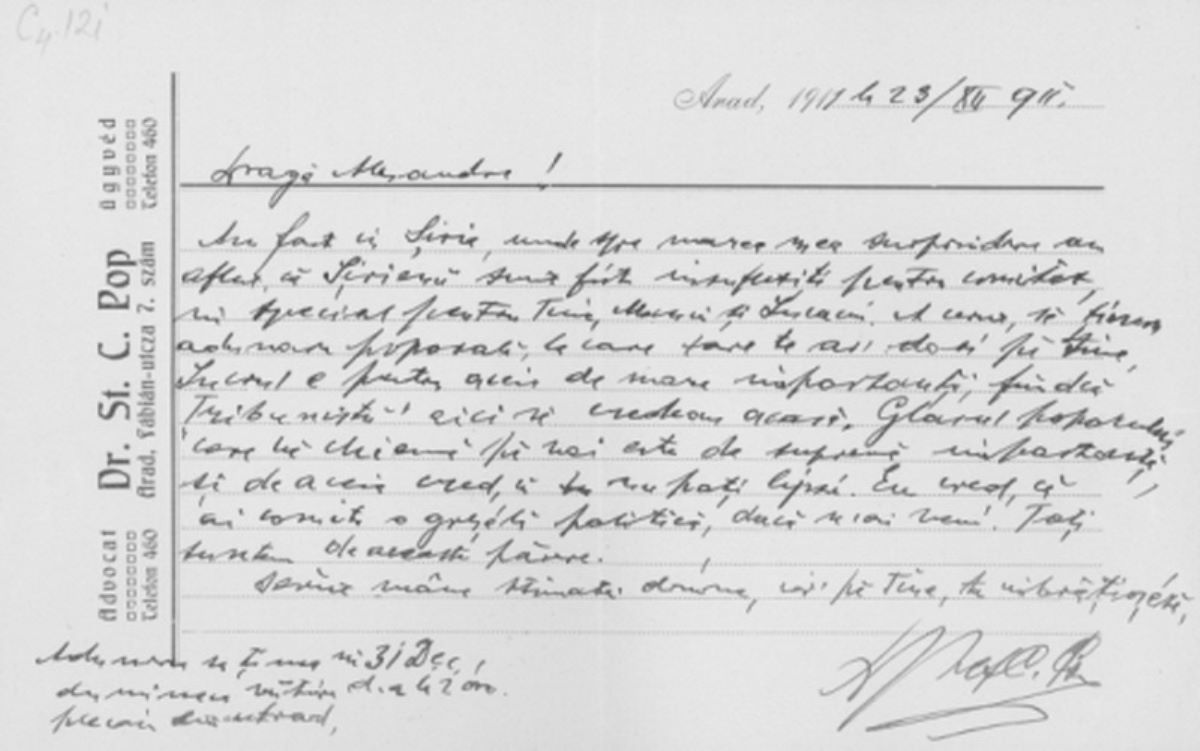 C4.12i
Arad, 1911 la 23/XII 911.
Advocat
Telefon 460
Dr. St. C. Pop
Arad, Fábián-utcza 7. szám
ügyvéd
Telefon 460
Dragă Alexandre!
Am fost în Șiria, unde spre marea mea surprindere am
aflat, că Șirienii sunt foarte însuflețiți pentru comitet,
în special pentru Tine, și Lucaciu. A cerut, să ținem
adunare poporală, la care te-ar dori pe Tine,
Lucrul e pentru aceia de mare importanță, fiindcă
Tribuniștii aici se credeau acasă. Glasul poporului
care ne chiamă pe noi este de supremă importanță,
și de aceia cred, că tu nu poți lipsi. Eu cred, că
ai comite o greșală politică, dacă n-ai veni. Toți
suntem de această părere.
Sărut mâna stimatei doamne, iar pe Tine, te îmbrățișază,
Adunarea se ține în 31 Dec.
dumineca viitoare d. a. la 2 ore.
plecăm din Arad,